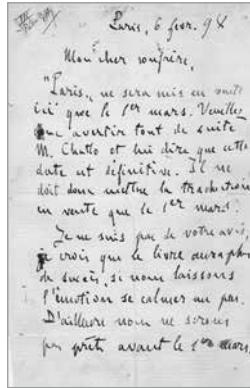 Paris, 6 fevr. 98
Mon cher confrère,
"Paris" ne sera mis en vente
ici que le 1er mars. Veuillez
donc avertir tout de suite
M. Chatto et lui dire que cette
date est définitive. Il ne
doit donc mettre la traduction
en vente que le 1er mars.
Je ne suis pas de votre avis,
je crois que le livre aura plus
de succès, si nous laissons
l'émotion se calmer un peu.
D'ailleurs nous ne serons
pas prêts avant le 1er mars.